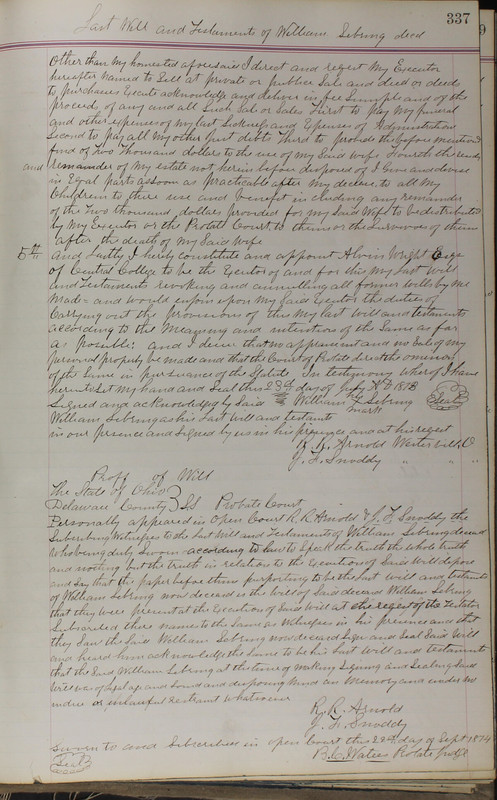 337
9
Last Will and Testament of William Sebring decd
Other than my homested aforesaid I direct and reqest My Executor
hereafter named to Sell at private or publice Sale and deed or deeds
to purchasers Execute acknowledge and deliver in fee Simple and of the
proceeds of any and all Such Sale or Sales First to pay My funeral
and other expenses of my last Sickness and Expenses of Administration
Second to pay all my other just debts Third to provide the before mentioned
fund of Two Thousand dollars to the use of my Said wife Fourth the residue
and remainder of my estate not herein before disposed of I Give and devise
in Equal parts as soon as practicable after my decease to all My
Children to there use and benefit including any remainder
of the two thousand dollars provided for my Said Wife to be distributed
by My Executor or the Probate Court to them or the Survivors of them
after the death of my Said Wife
5th And Lastly I hereby constitute and appoint Alvin Wright Esqe
of Central College to be the Executor of and for this My Last Will
and Testaments revoking and annulling all former Wills by me
Made = and would enjoin upon My Said Executor the duties of
Carrying out the provisions of this my last will and testaments
according to the Meaning and intention of the Same as far
as possible; and I desire that no appraisment and no Sale of my
personal property be made and that the Court of Probate direct the omission
of the Same in pursuance of the Statute In testimony whereof I have
hereunto Set My hand and Seal this 23d day of July A D 1873
Signed and acknowledged by Said William his Sebring Seal
William Sebring as his Last Will and testant mark
in our presence and Signed by us in his presence and at his reqest
R. R. Arnold Westerville O
J. F. Snoddy " "
Proff of Will
The State of Ohio
Delaware County } SS Probate Court
Personally appeared in Open Court R. R. Arnold & J. F. Snoddy the
Subscribing Witnesses to the Last Will and Testaments of William Sebring deceased
who being duly Sworn according to Law to Speak the truth the whole truth
and nothing but the truth in relation to the Execution of Said Will depose
and Say that the paper before them purporting to be the Last will and testament
of William Sebring now deceased is the Will of Said deceased William Sebring
that they were present at the Execution of Said Will at the reqest of the Testator
Subscribed there names to the Same as Witnesses in his presence and that
they Saw the Said William Sebring now deceased Sign and Seal Said Will
and heard him acknowledge the Same to be his Last Will and testaments
that the Said William Sebring at the time of making Signing and Sealing Said
Will was of Legal age and Sound and disposing Mind and Memory and under no
undue or unlawful restraint whatsoever
R. R. Arnold
J. F. Snoddy
Sworn to and Subscribed in open Court this 22d day of Sept 1874
Seal B. C. Waters Probate Judge